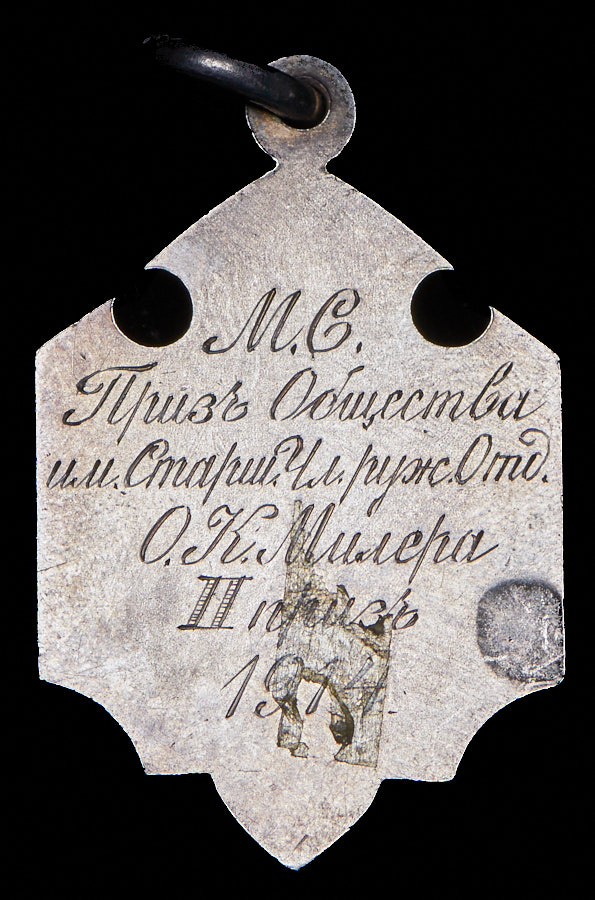 М. С.
Призъ Общества
им. Старш. Чл. руж. Отд.
О. К. Милера
II призъ
1914.